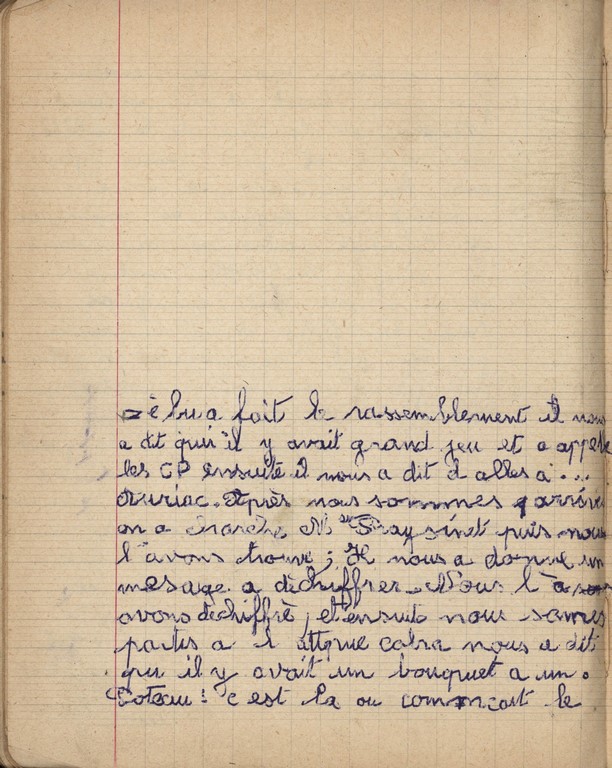 Zèbu a fait le rassemblement il nous
a dit qu'il y avait grand jeu et a appelé
les CP ensuite il nous a dit d alles a ...
Auriac. Après nous sommes arrivé
on a Mr Fraysinet puis nous
l'avons trouve ; Il nous a donne un
mesage a dèchiffrer. Nous l'a
avons dechiffrè, et ensuite nous somes
partis a l attque cabra nous a dit
qu il y avait un bouquet a un.
Poteau : c est la ou commcait le